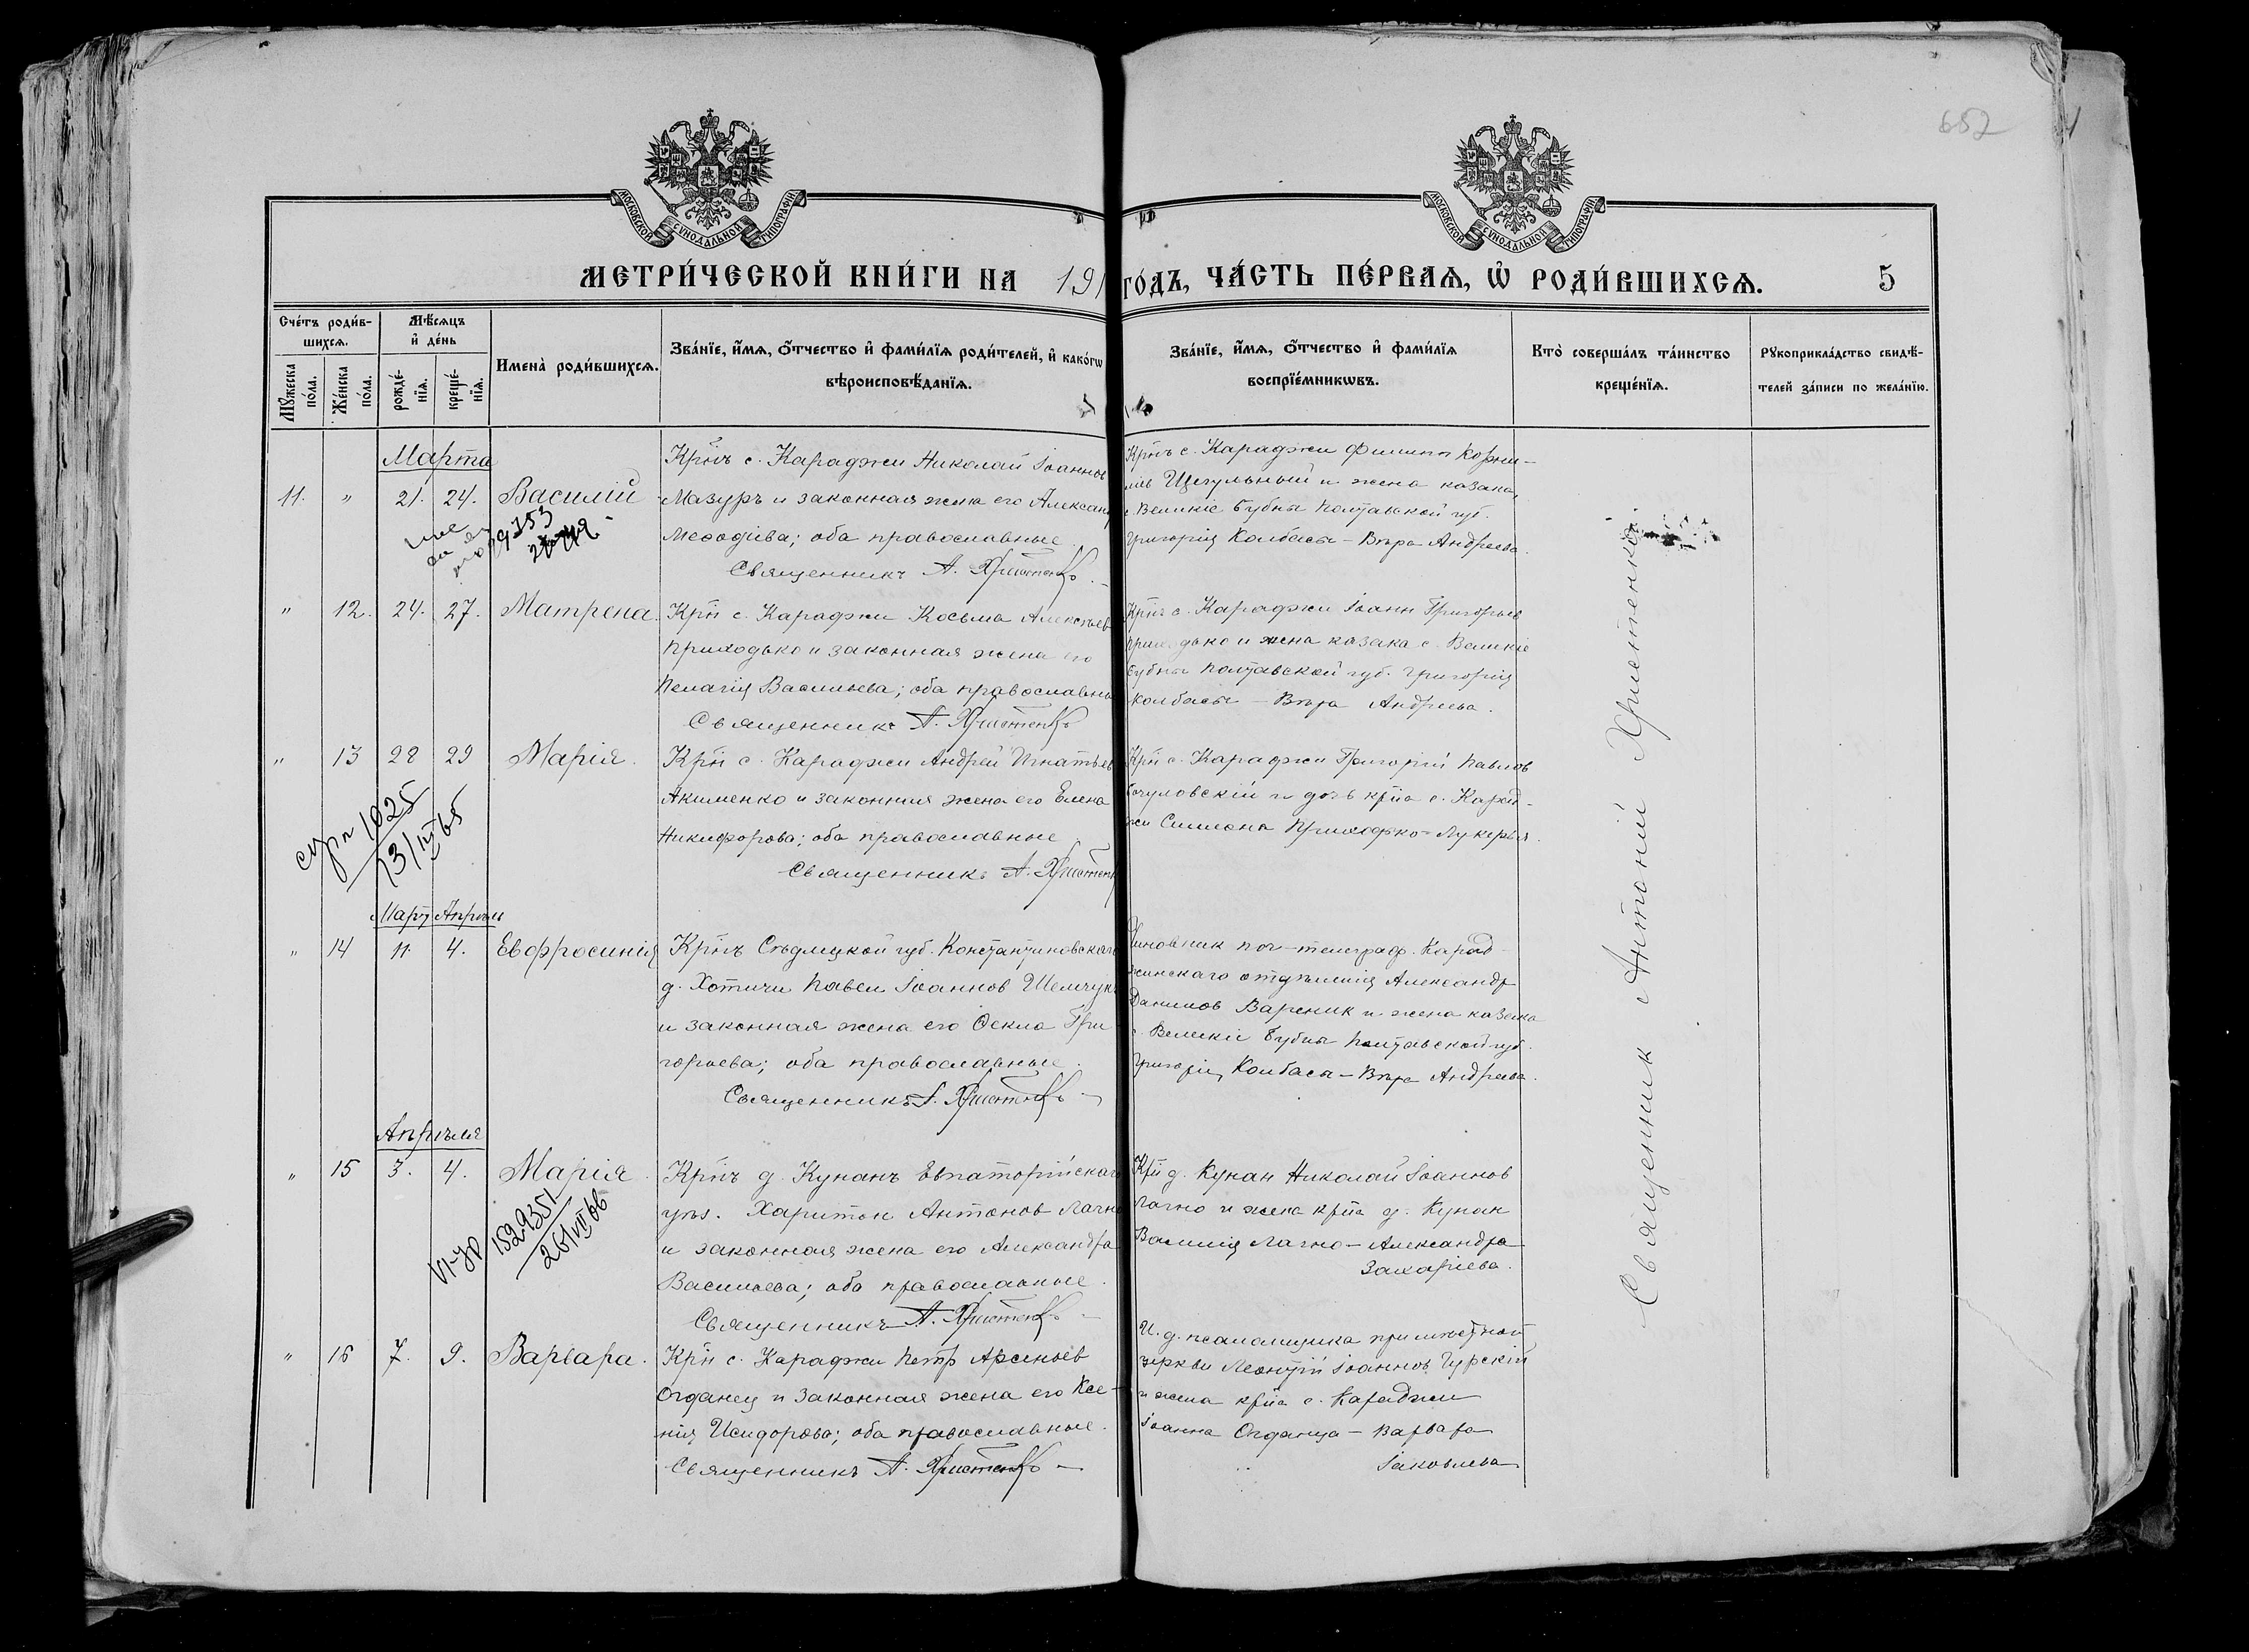 652
МОСКОВСКОЙ СѴНОДАЛЬНОЙ ТИПОГРАФІИ
МОСКОВСКОЙ СѴНОДАЛЬНОЙ ТИПОГРАФІИ
МЕТРИ́ЧЕСКОЙ КНИ́ГИ НА 191
ГО́ДЪ, ЧА́СТЬ ПЕ́РВАѦ, Ѡ҆ РОДИ́ВШИХСѦ.
5
Сче́тъ роди́в-
шихсѧ.
Мꙋ́жеска по́ла.
Же́нска по́ла.
Мѣ́сѧцъ
и҆ де́нь
рожде́-
нїѧ.
креще́-
нїѧ.
Имена̀ роди́вшихсѧ.
Зва́нїе, и҆́мѧ, ѻ҆́тчество и҆ фами́лїѧ роди́телей, и҆ како́гѡ
вѣроисповѣ́данїѧ.
Зва́нїе, и҆́мѧ, ѻ҆́тчество и҆ фами́лїѧ
воспрїе́мникѡвъ.
Кто̀ соверша́лъ та́инство
креще́нїѧ.
Рꙋкоприкла́дство свидѣ́-
телей за́писи по жела́нїю.
Марта
11. " 21. 24. Василій
Крн̃ъ с. Караджи Николай Іоаннов
Мазуръ и законная жена его Александ
Меѳодіева; оба православные
Священникъ А. Христенко
Крн̃ъ с. Караджи Филипп Корни-
лов Щегульный и жена казака
с. Великіе Бубны Полтавской губ.
Григорія Колбасы - Вѣра Андреева.
" 12. 24. 27. Матрена.
Крн̃ с. Караджи Косьма Алексѣев
Приходько и законная жена его
Пелагія Васильева; оба православны
Священникъ А. Христенко
Крн̃ъ с. Караджи Іоанн Григорьев
Приходько и жена казака с. Великіе
Бубны Полтавской губ. Григорія
Колбасы - Вѣра Андреева.
" 13 28 29 Марія.
Крн̃ с. Караджи Андрей Игнатьев
Акименко и законная жена его Елена
Никифорова; оба православные
Священникъ А. Христен
Крн̃ с. Караджи Григорій Павлов
и дочь крн̃а с. Карад-
жи Симеона Приходько - Лукерья.
1025
13/III 65
Март Апрѣль
" 14 11. 4. Евфросинія
Крн̃ъ Сѣдлецкой губ. Константиновскаго
д. Хотичи Павел Іоаннов Шемчук
и законная жена его Ѳекла Гри
горьева; оба православные.
Священникъ А. Христенко
Чиновник поч-телеграф. Карад-
жинскаго отдѣленія Александр
Данилов Вареник и жена казака
с. Великіе Бубны Полтавской губ.
Григорія Колбасы - Вѣра Андреева.
Апрѣля
" 15 3. 4. Марія.
Крн̃ъ д. Кунанъ Евпаторійскаго
уѣз. Харитон Антонов Лачно
и законная жена его Александра
Васильева; оба православные.
Священникъ А. Христенко
Крн̃ д. Кунан Николай Іоаннов
Лачно и жена крн̃а д. Кунан
Василія Лачно - Александра
Захаріева.
VI-УР 1529351
26/VII 66
" 16 7. 9. Варвара.
Крн̃ с. Караджи Петр Арсеньев
Огданец и законная жена его Ксе-
нія Исидорова; оба православные.
Священникъ А. Христенко
И. д. псаломщика при мѣстной
церкви Леонтій Іоаннов Гурскій
и жена крн̃а с. Караджи
Іоанна Огданца - Варвара
Іаковлева
Священник Антоний Христенко.